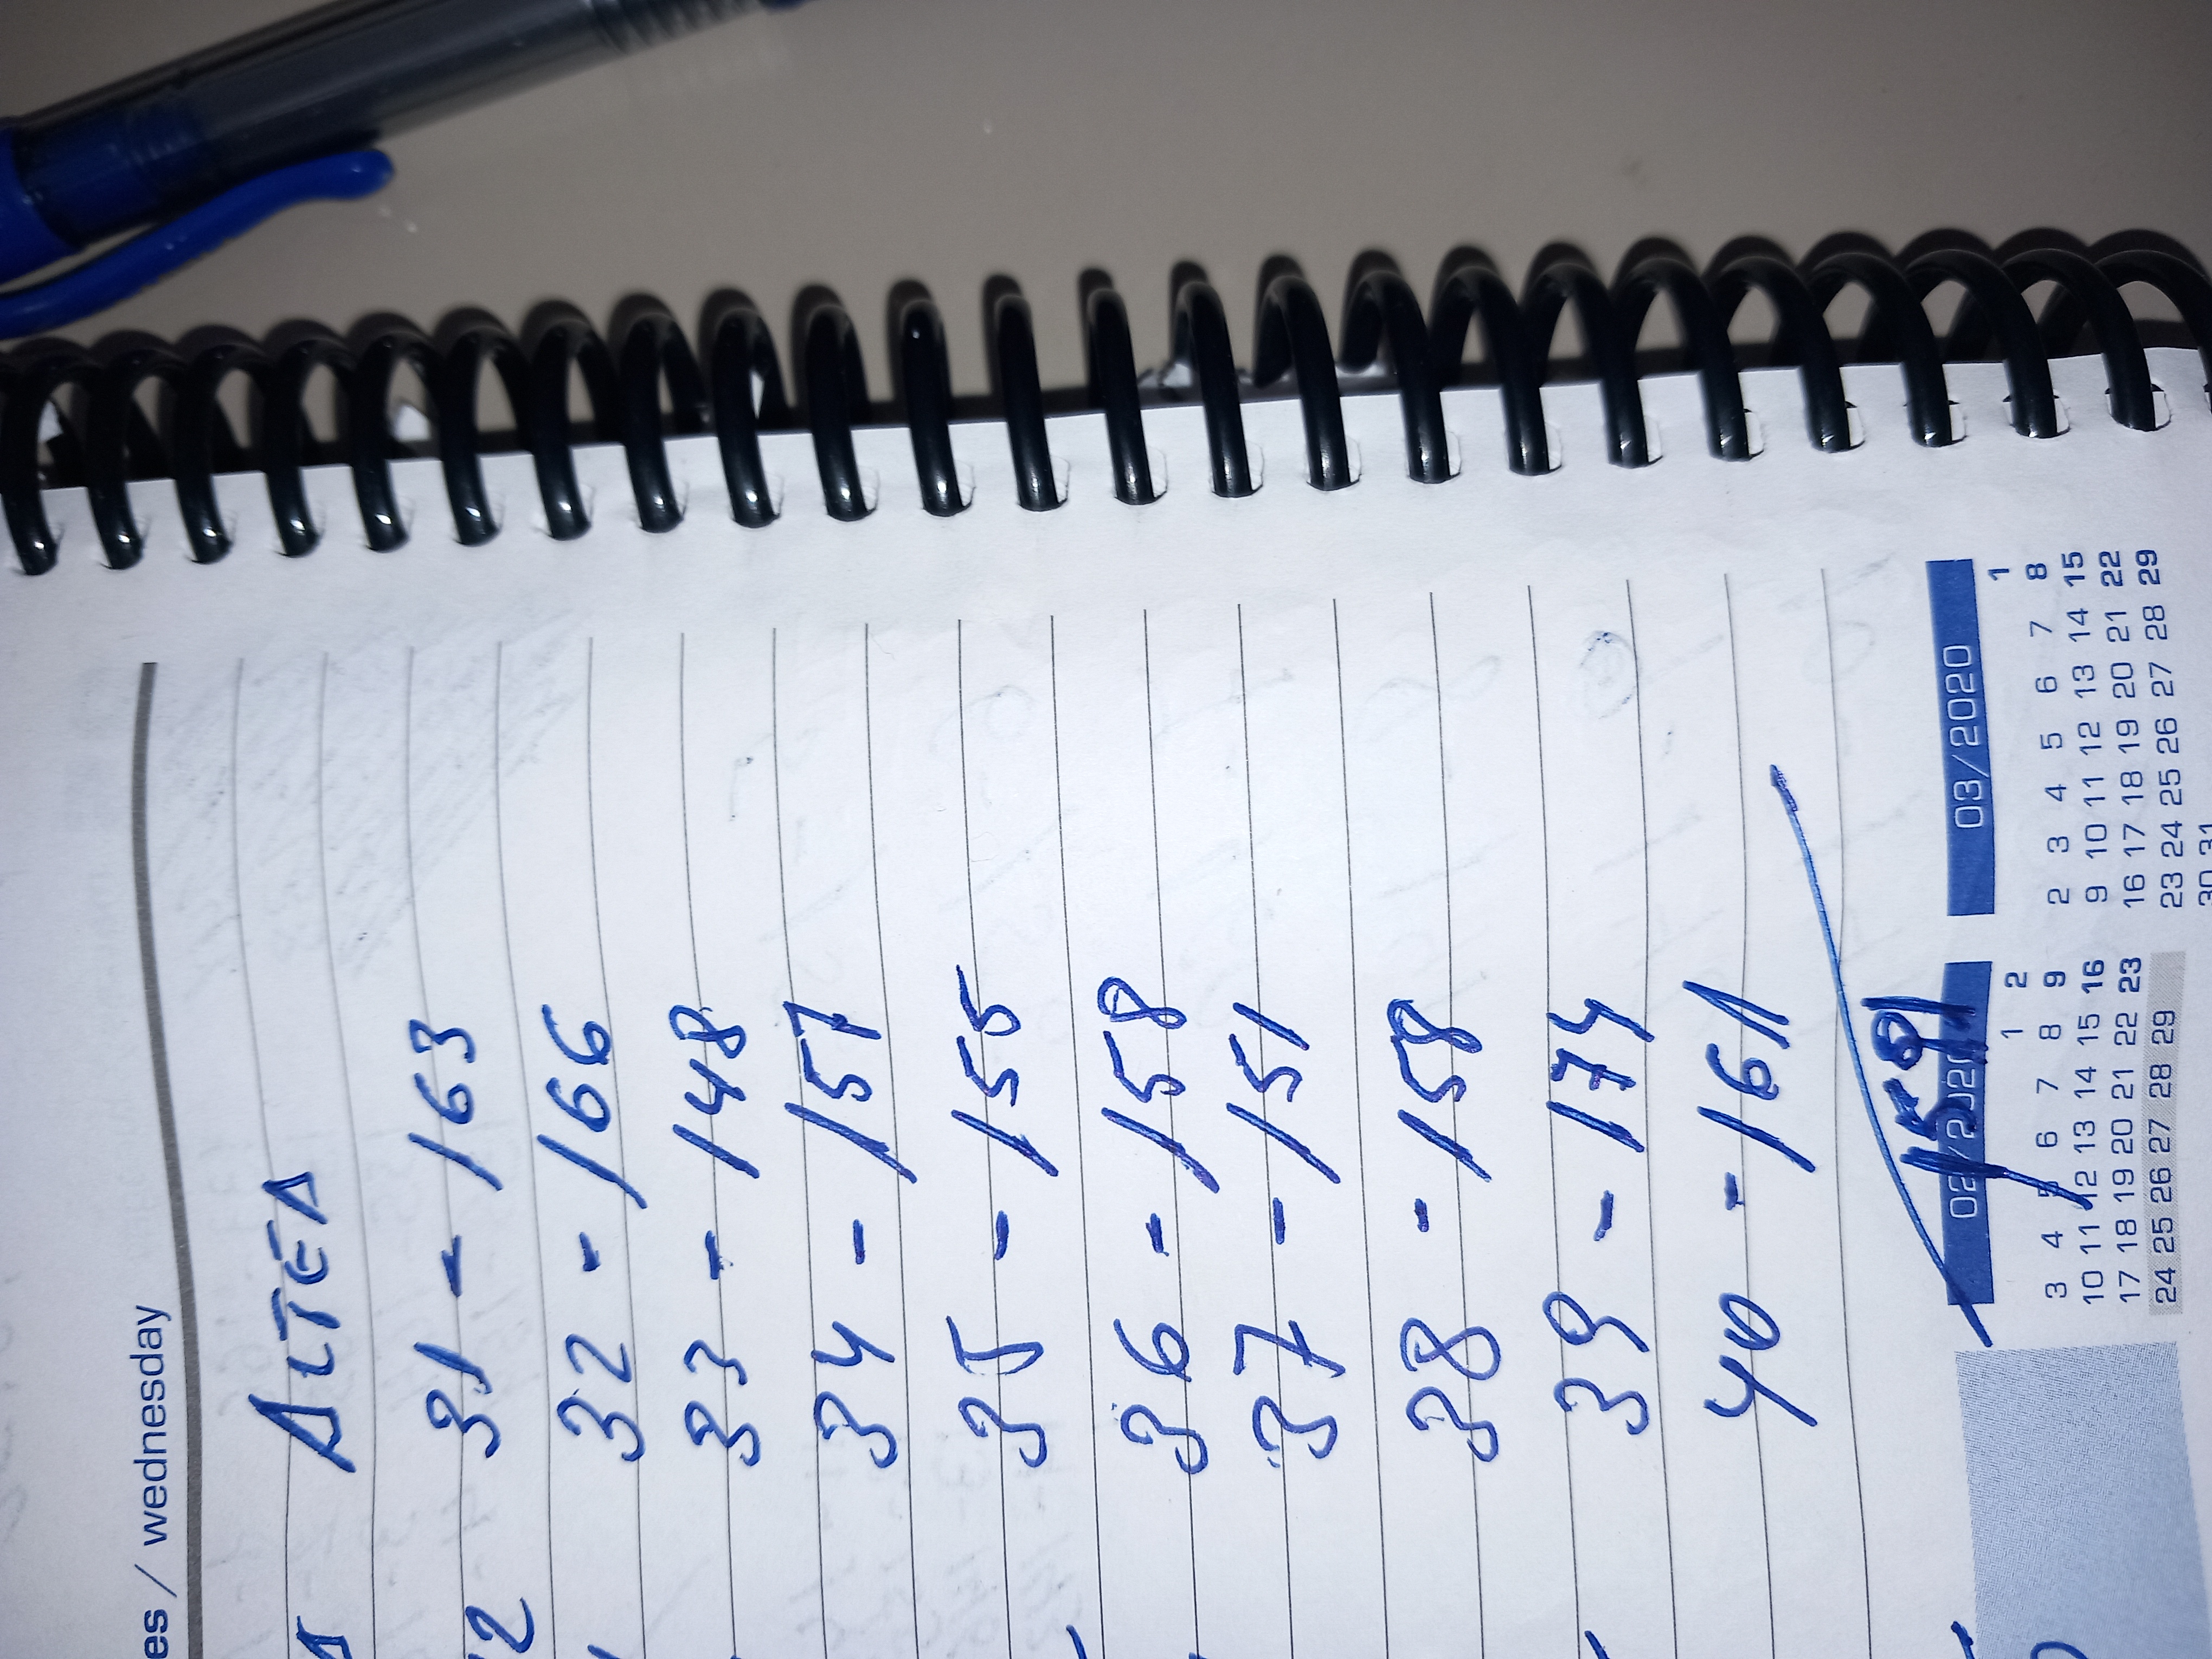 es / wednesday
ALTEA
31 - 163
32 - 166
33 - 148
34 - 157
35 - 155
36 - 158
37 - 151
38 - 158
39 - 174
40 - 161
1591
02/2020
1 2
3 4 5 6 7 8 9
10 11 12 13 14 15 16
17 18 19 20 21 22 23
24 25 26 27 28 29
03/2020
1
2 3 4 5 6 7 8
9 10 11 12 13 14 15
16 17 18 19 20 21 22
23 24 25 26 27 28 29
30 31